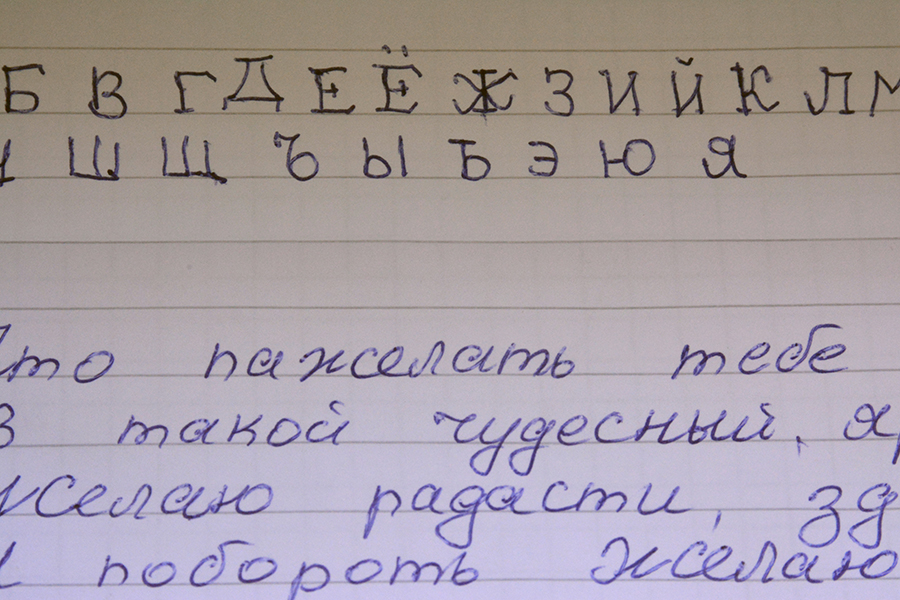 Б В Г Д Е Ё Ж З И Й К Л М
Ш Щ Ъ Ы Ь Э Ю Я
что пажелать тебе
В такой чудесный,
желаю радасти,
И побороть желаю